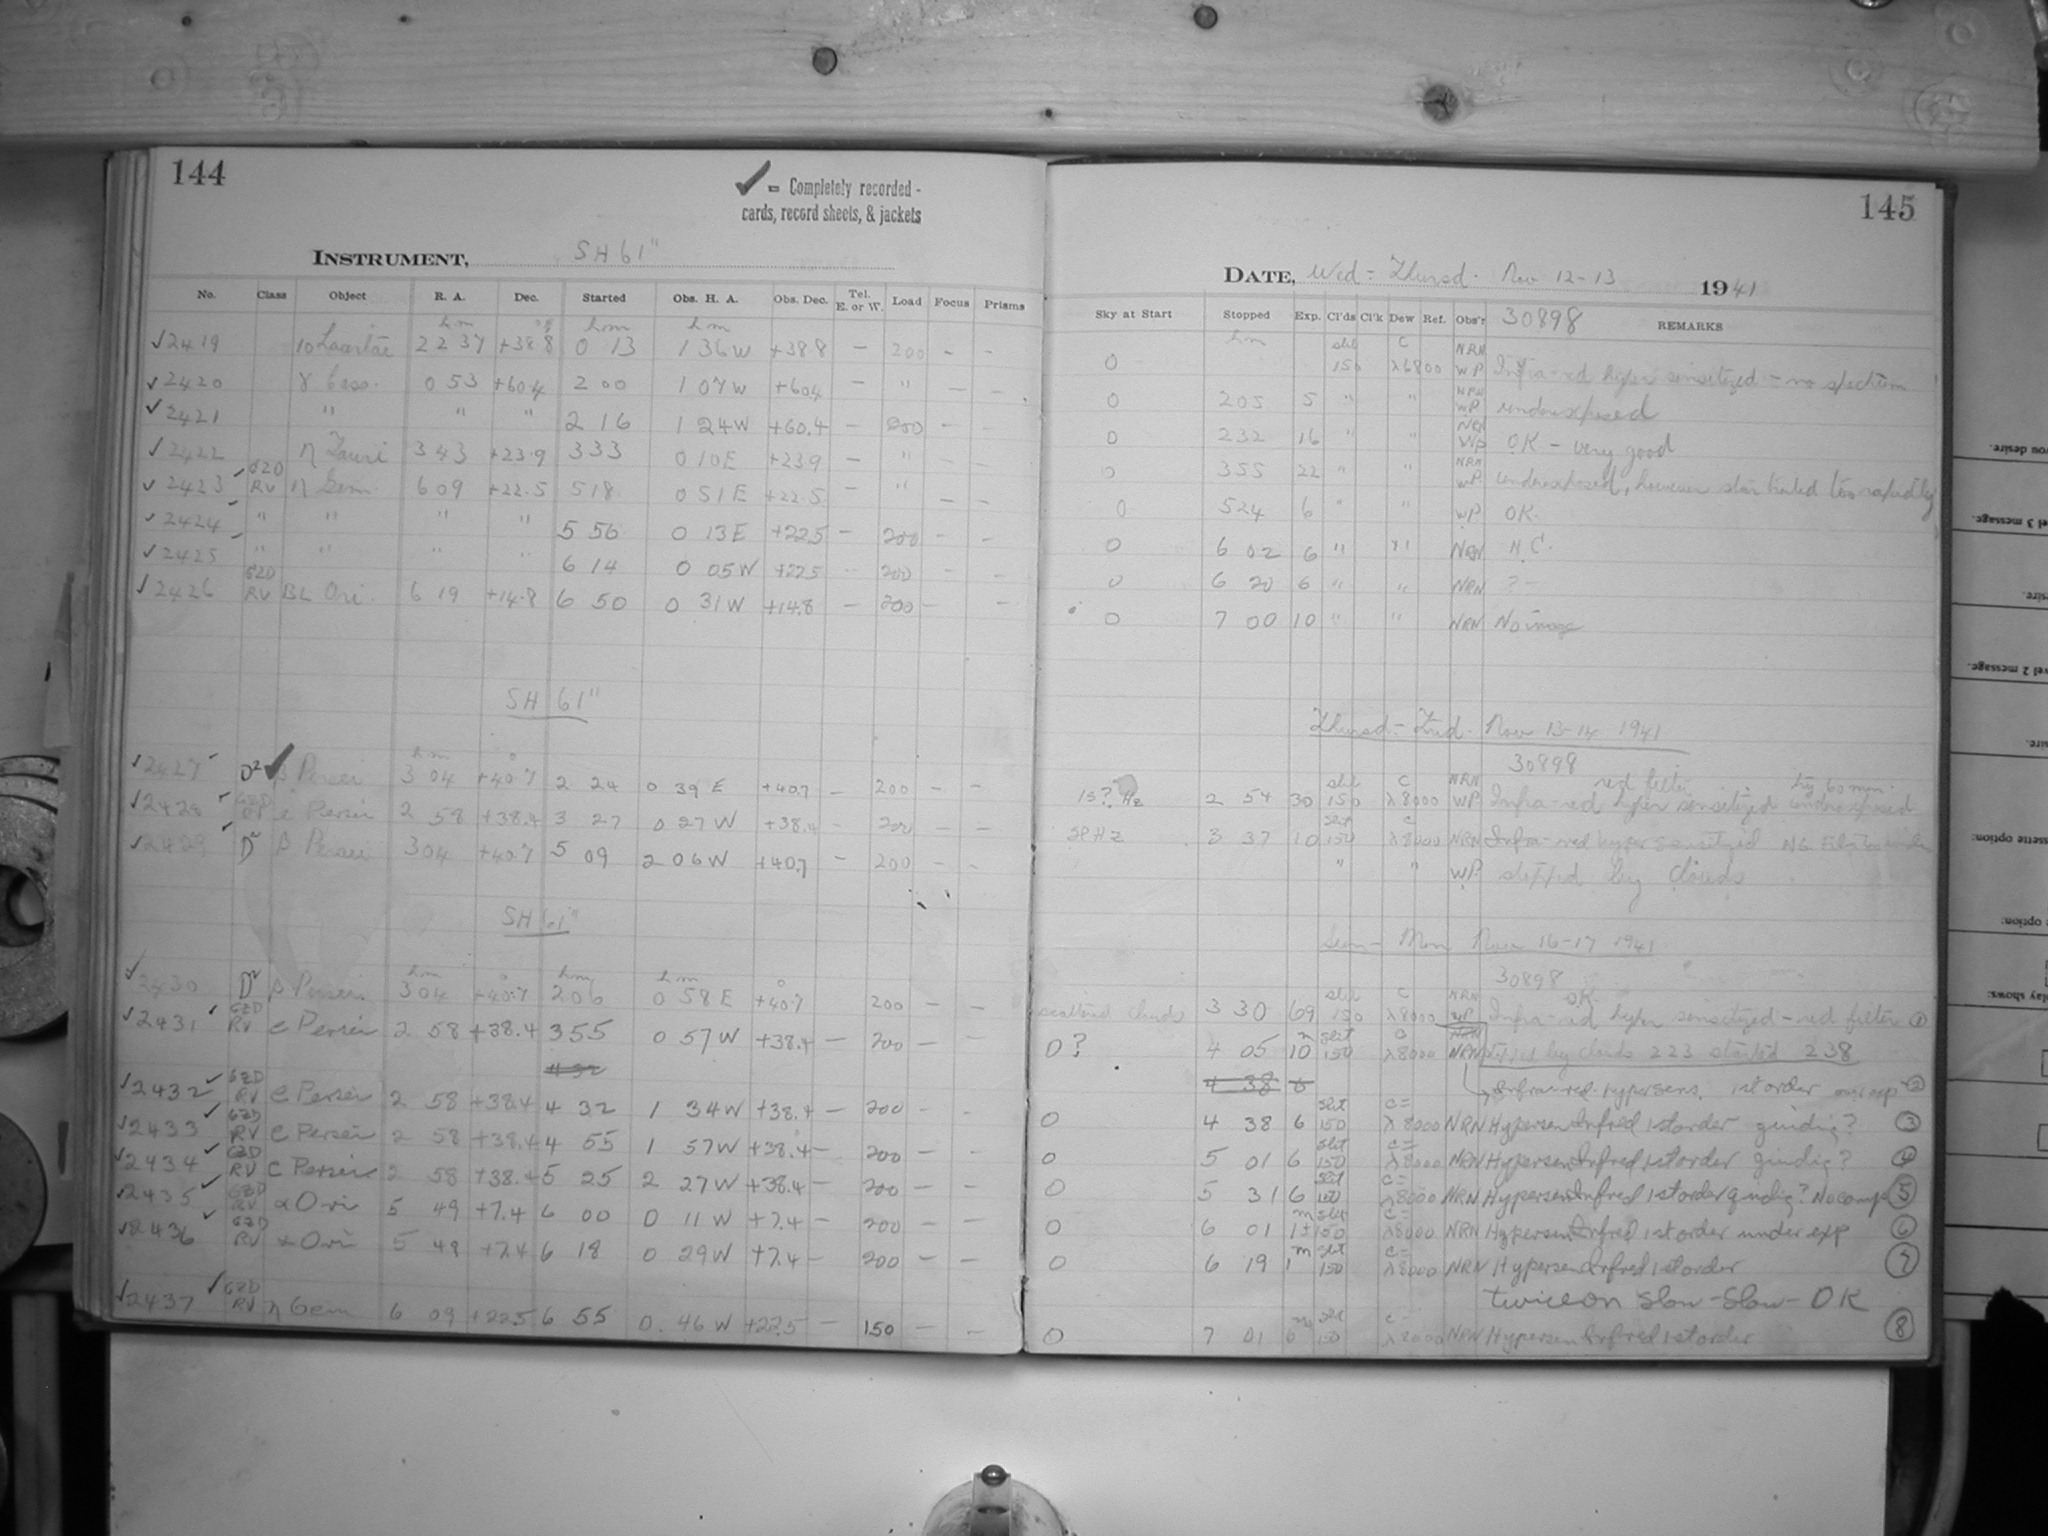 144
✓ = Completely recorded -
cards, record sheets, & jackets
INSTRUMENT, SH 61"
No. Class Object R. A. Dec. Started Obs. H. A. Obs. Dec. Tel. E. or W. Load Focus Prisms
h m h m h m
✓2419 10 22 37 +38.8 0 13 1 36W +38.8 — 200 – –
✓2420 γ Cass. 0 53 +60.4 2 00 1 07W +60.4 — " – –
✓2421 " " " 2 16 1 24W +60.4 — 200 – –
✓2422 η Tauri 3 43 +23.9 3 33 0 10E +23.9 — " – –
✓2423 GZD RV η Gem. 6 09 +22.5 5 18 0 51E +22.5 — " – –
✓2424 " " " " 5 56 0 13E +22.5 – 200 – –
✓2425 " " " " 6 14 0 05W +22.5 – 200 – –
✓2426 GZD RV BL Ori. 6 19 +14.8 6 50 0 31W +14.8 – 200 – –
SH 61"
h m °
✓2427 D² ✓ β Persei 3 04 +40.7 2 24 0 39 E +40.7 – 200 – –
✓2428 GZD Persei 2 58 +38.4 3 27 0 27W +38.4 – 200 – –
✓2429 D² β Persei 3 04 +40.7 5 09 2 06W +40.7 – 200 – –
SH 61"
h m ° h m h m °
✓2430 D² β Persei. 3 04 +40.7 2 06 0 58 E +40.7 200 – –
✓2431 GZD RV Persei 2 58 +38.4 3 55 0 57W +38.4 – 200 – –
4 32
✓2432 GZD RV Persei 2 58 +38.4 4 32 1 34W +38.4 – 200 – –
✓2433 GZD RV Persei 2 58 +38.4 4 55 1 57W +38.4 – 200 – –
✓2434 GZD RV Persei 2 58 +38.4 5 25 2 27W +38.4 – 200 – –
✓2435 GZD RV α Ori 5 49 +7.4 6 00 0 11W +7.4 – 200 – –
✓2436 GZD RV α Ori 5 49 +7.4 6 18 0 29W +7.4 – 200 – –
✓2437 GZD RV η Gem 6 09 +22.5 6 55 0. 46W +22.5 – 150 – –
145
DATE, Wed - Thursd. Nov 12-13 1941
Sky at Start Stopped Exp. Cl'ds Cl'k Dew Ref. Obs'r 30898 REMARKS
h m slit C NRN
0 150 λ6800 WP Infra-red hyper sensitized - no spectrum
0 2 05 5 " " NRN WP underexposed
0 2 32 16 " " NRN WP OK - very good
0 3 55 22 " " NRN WP underexposed, however star trailed too rapidly
0 5 24 6 " " WP OK.
0 6 02 6 " " NRN N.C.
0 6 20 6 " " NRN ? –
0 7 00 10 " " NRN No image
Thursd - Frid. Nov 13-14 1941
30898
slit C NRN red filter by 60 min.
Hz 2 54 30 150 λ8000 WP Infra-red hyper sensitized underexposed
slit C
3 37 10 150 λ8000 NRN Infra-red hyper sensitized No Filter
" " WP stopped by clouds
Sun - Mon Nov 16-17 1941
30898
slit C NRN OK
scattered clouds 3 30 69 150 λ8000 WP Infra-red hyper sensitized - red filter ①
0? 4 05 10 m slit 150 C λ8000 NRN stopped by clouds 2 23 started 2 38
4 38 6 → Infra-red Hypersens. 1st order ②
0 4 38 6 slit 150 C= λ8000 NRN Hypersen Infred 1st order ? ③
0 5 01 6 slit 150 C= λ8000 NRN Hypersen Infred 1st order ? ④
0 5 31 6 slit 150 C= λ8000 NRN Hypersen Infred 1st order ? No comp ⑤
0 6 01 m slit 150 C= λ8000 NRN Hypersen Infred 1st order under exp ⑥
0 6 19 1 m slit 150 C= λ8000 NRN Hypersen Infred 1st order ⑦
twice on slow - slow - OK
0 7 01 6 m slit 150 C= λ8000 NRN Hypersen Infred 1st order ⑧
you desire.
vel 3 message.
sire.
vel 2 message.
ssette option:
e option:
play shows: